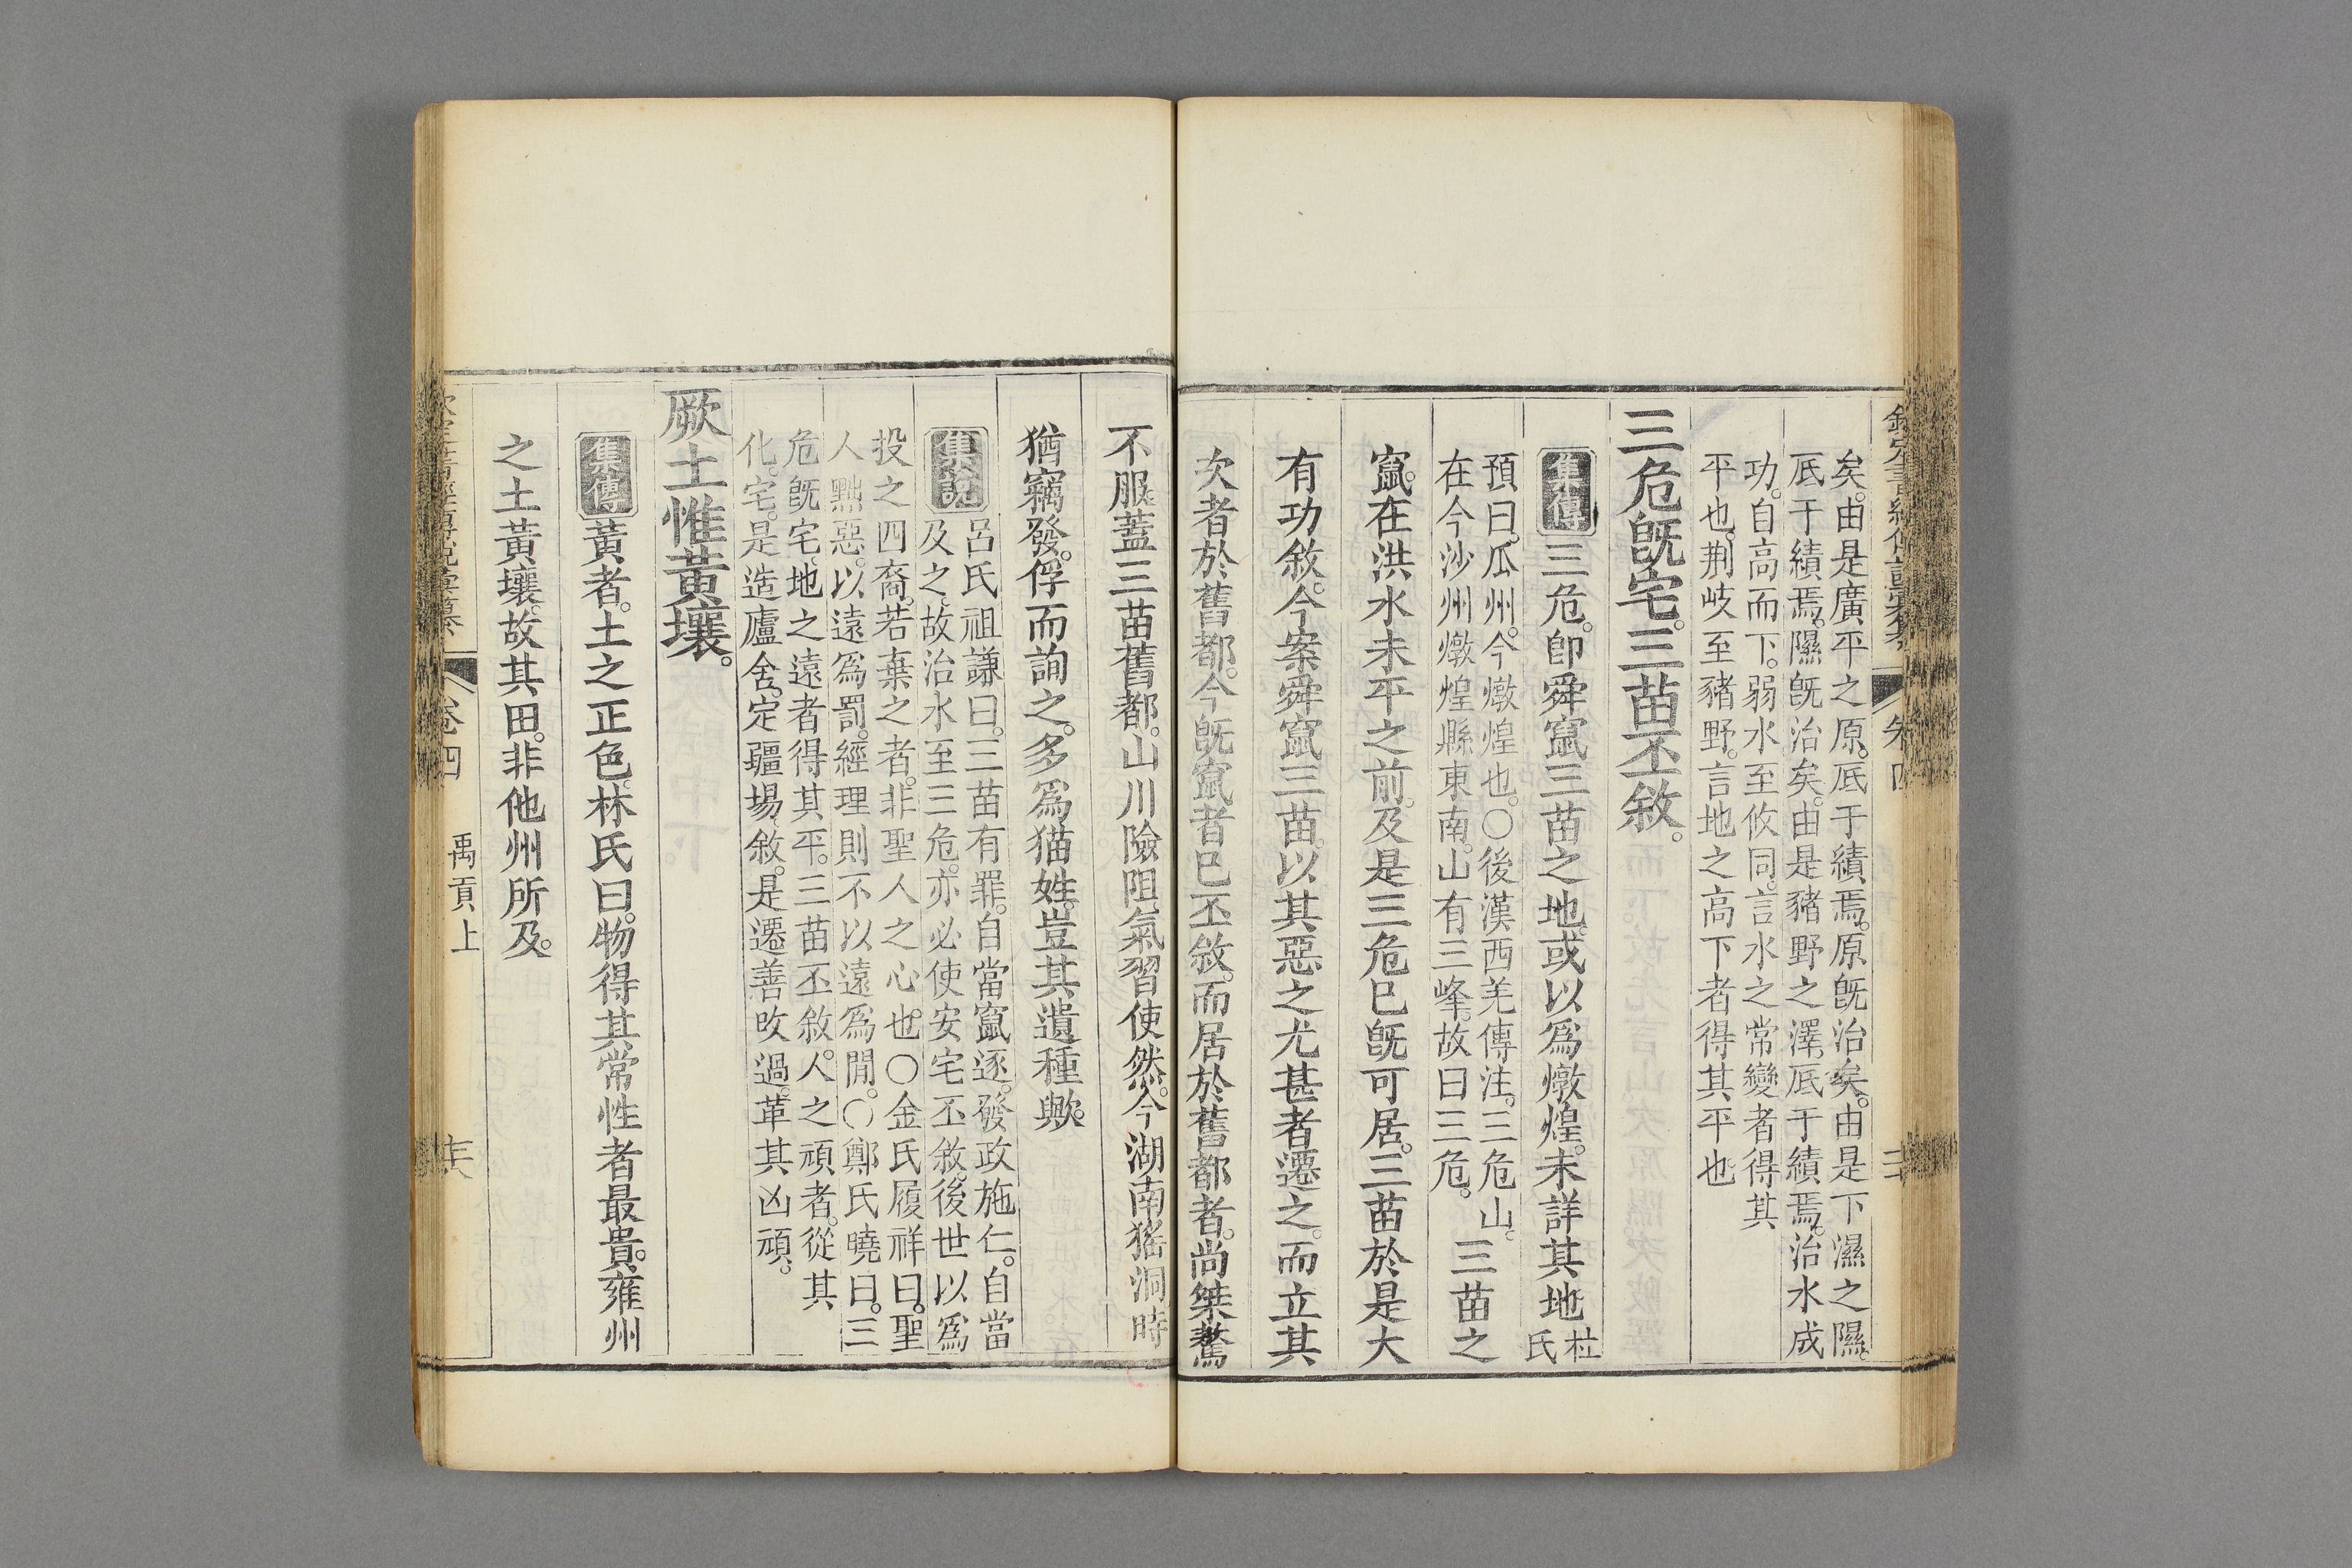 矣。由是廣平之原。厎于績焉。原旣治矣。由是下濕之隰。
厎于績焉。隰旣治矣。由是豬野之澤。厎于績焉。治水成
功。自高而下。弱水至攸同。言水之常變者得其
平也。荆岐至豬野。言地之高下者得其平也
三危旣宅。三苗丕敘。
集傳 三危。卽舜竄三苗之地。或以爲燉煌。未詳其地 杜氏
預曰。瓜州。今燉煌也。○後漢西羌傳注。三危山。
在今沙州燉煌縣東南。山有三峰。故曰三危。 三苗之
竄。在洪水未平之前。及是三危已旣可居。三苗於是大
有功敘。今案舜竄三苗。以其惡之尤甚者遷之。而立其
次者於舊都。今旣竄者已丕敘。而居於舊都者。尚桀驁
不服。蓋三苗舊都。山川險阻。氣習使然。今湖南猺洞。時
猶竊發。俘而詢之。多爲猫姓。豈其遺種歟。
集說 呂氏祖謙曰。三苗有罪。自當竄逐。發政施仁。自當
及之。故治水至三危。亦必使安宅丕敘。後世以爲
投之四裔。若棄之者。非聖人之心也。○金氏履祥曰。聖
人黜惡。以遠爲罰。經理則不以遠爲閒。○鄭氏曉曰。三
危旣宅。地之遠者得其平。三苗丕敘。人之頑者。從其
化。宅。是造廬舍。定疆場。敘。是遷善改過。革其凶頑。
厥土惟黃壤。
集傳 黃者。土之正色。林氏曰。物得其常性者最貴。雍州
之土黃壤。故其田。非他州所及。
卷四 禹貢上